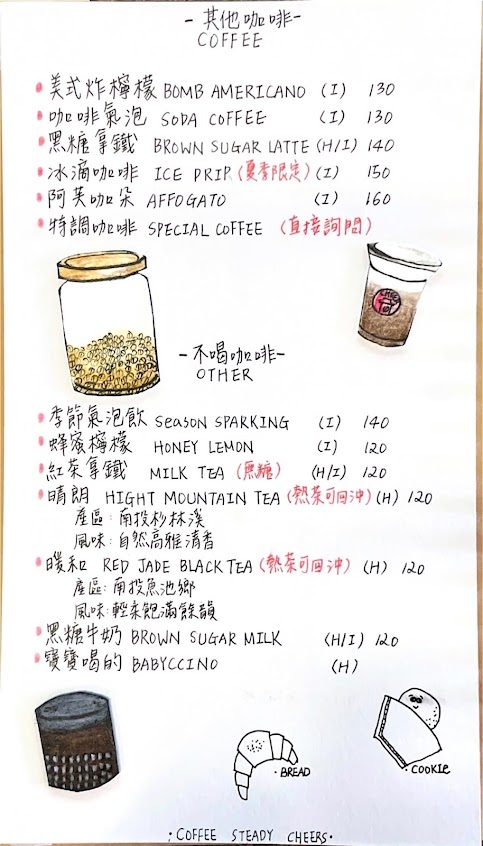 -其他咖啡-
COFFEE
美式炸檸檬 BOMB AMERICANO (I) 130
咖啡氣泡 SODA COFFEE (I) 130
黑糖拿鐵 BROWN SUGAR LATTE (H/I) 140
冰滴咖啡 ICE DRIP (夏季限定) (I) 150
阿芙咖朵 AFFOGATO (I) 160
特調咖啡 SPECIAL COFFEE (直接詢問)
-不喝咖啡-
OTHER
季節氣泡飲 SEASON SPARKING (I) 140
蜂蜜檸檬 HONEY LEMON (I) 120
紅茶拿鐵 MILK TEA (無糖) (H/I) 120
晴朗 HIGHT MOUNTAIN TEA (熱茶可回沖) (H) 120
產區:南投杉林溪
風味:自然高雅清香
暖和 RED JADE BLACK TEA (熱茶可回沖) (H) 120
產區:南投魚池鄉
風味:輕柔飽滿餘韻
黑糖牛奶 BROWN SUGAR MILK (H/I) 120
寶寶喝的 BABYCCINO (H)
·BREAD
·COOKIE
·COFFEE STEADY CHEERS·